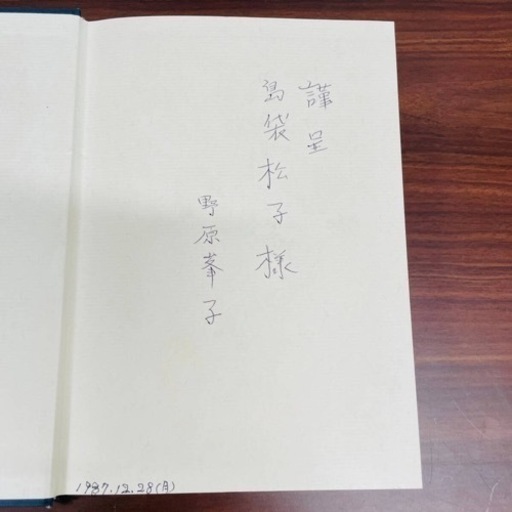 謹呈
島袋松子様
野原峯子
1987.12.28(月)